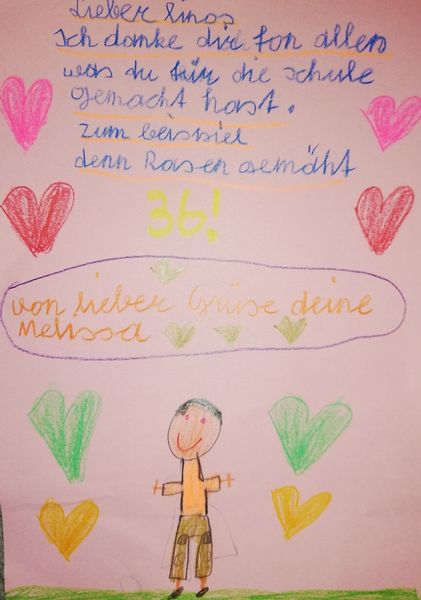 Lieber Linos
Ich danke dir fon allen
was du für die schule
gemacht hast.
zum beispiel
denn Rasen gemäht
36!
von lieber Grüse deine
Melissa